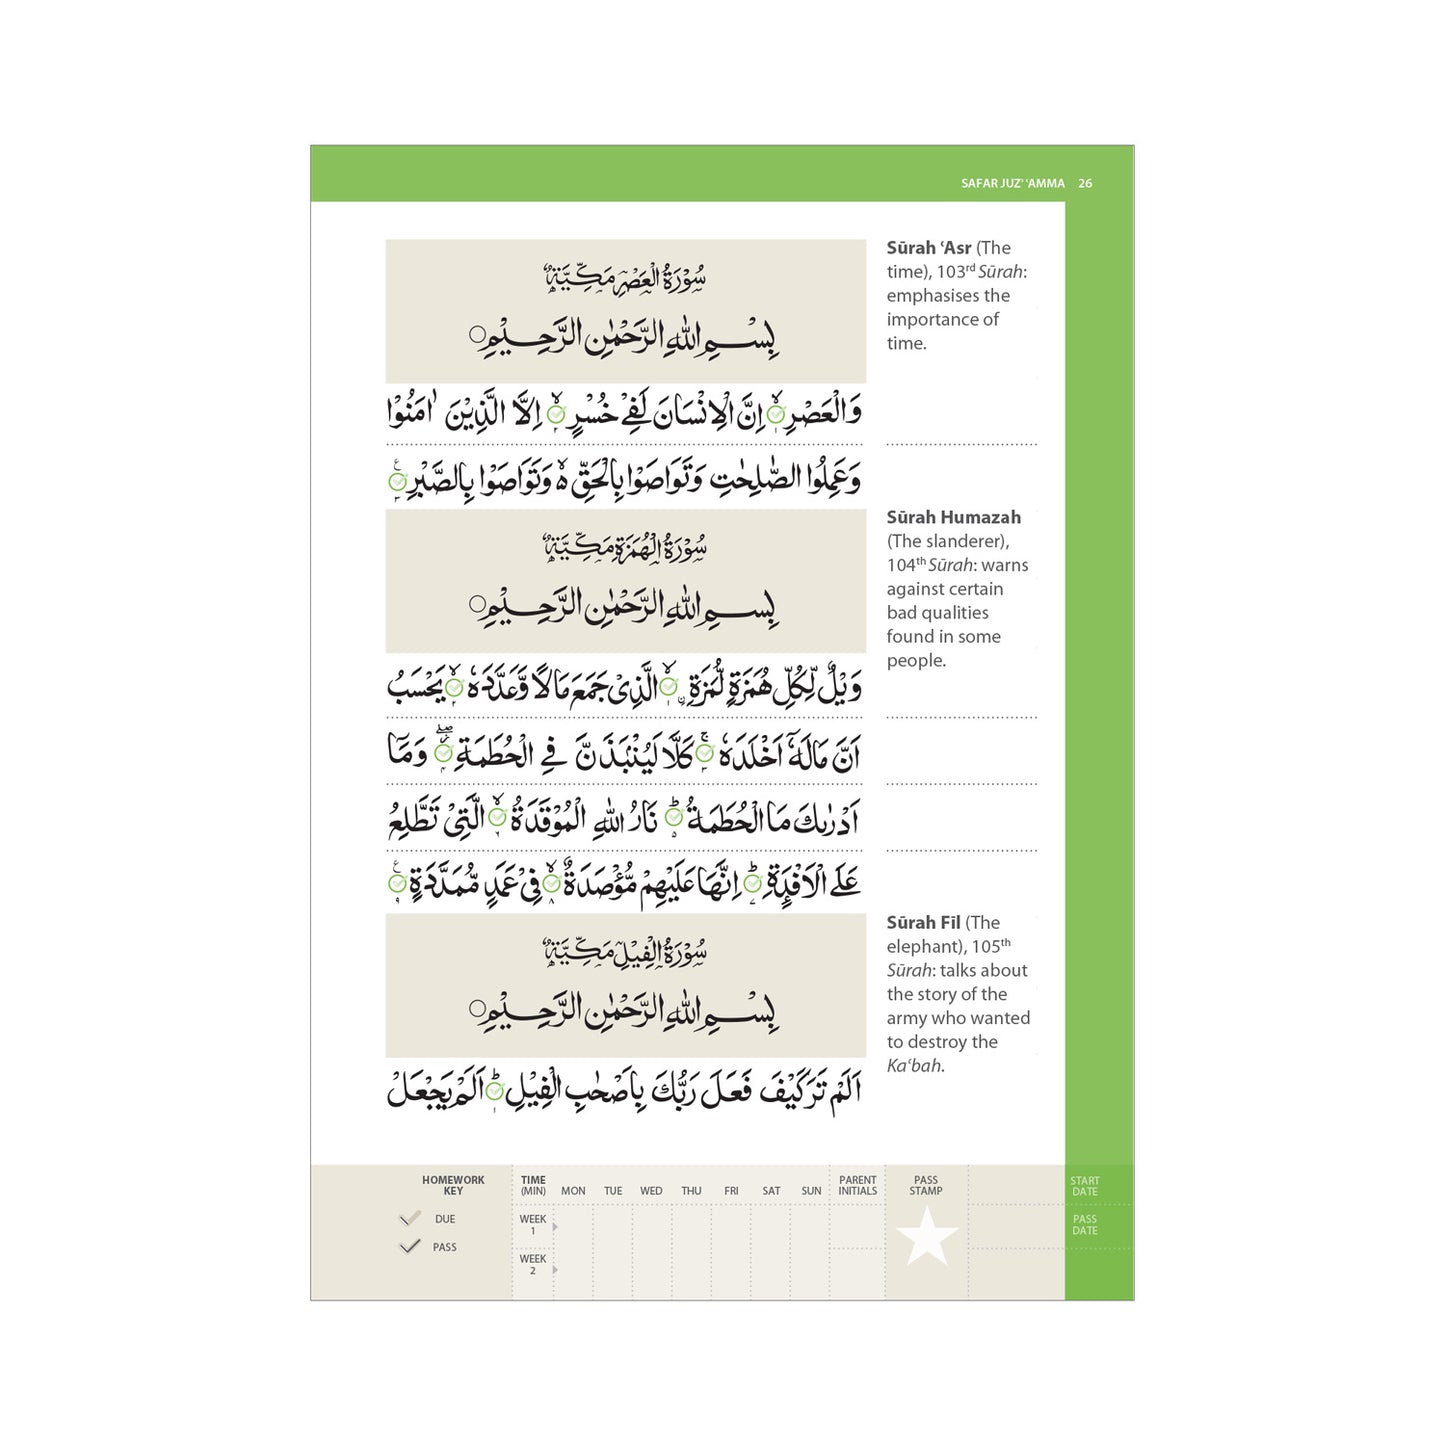 SAFAR JUZ’ ‘AMMA 26
سُوْرَةُ الْعَصْرِ مَكِّيَّةٌ
بِسْمِ اللّٰهِ الرَّحْمٰنِ الرَّحِيْمِ
وَالْعَصْرِ اِنَّ الْاِنْسَانَ لَفِيْ خُسْرٍ اِلَّا الَّذِيْنَ اٰمَنُوْا
وَعَمِلُوا الصّٰلِحٰتِ وَتَوَاصَوْا بِالْحَقِّ ۙ وَتَوَاصَوْا بِالصَّبْرِ
Sūrah ‘Asr (The
time), 103rd Sūrah:
emphasises the
importance of
time.
سُوْرَةُ الْهُمَزَةِ مَكِّيَّةٌ
بِسْمِ اللّٰهِ الرَّحْمٰنِ الرَّحِيْمِ
وَيْلٌ لِّكُلِّ هُمَزَةٍ لُّمَزَةِ الَّذِيْ جَمَعَ مَالًا وَّعَدَّدَهٗ يَحْسَبُ
اَنَّ مَالَهٗٓ اَخْلَدَهٗ كَلَّا لَيُنْۢبَذَنَّ فِي الْحُطَمَةِ وَمَآ
اَدْرٰىكَ مَا الْحُطَمَةُ نَارُ اللّٰهِ الْمُوْقَدَةُ الَّتِيْ تَطَّلِعُ
عَلَى الْاَفْـِٕدَةِ اِنَّهَا عَلَيْهِمْ مُّؤْصَدَةٌ فِيْ عَمَدٍ مُّمَدَّدَةٍ
Sūrah Humazah
(The slanderer),
104th Sūrah: warns
against certain
bad qualities
found in some
people.
سُوْرَةُ الْفِيْلِ مَكِّيَّةٌ
بِسْمِ اللّٰهِ الرَّحْمٰنِ الرَّحِيْمِ
اَلَمْ تَرَ كَيْفَ فَعَلَ رَبُّكَ بِاَصْحٰبِ الْفِيْلِ اَلَمْ يَجْعَلْ
Sūrah Fīl (The
elephant), 105th
Sūrah: talks about
the story of the
army who wanted
to destroy the
Ka‘bah.
HOMEWORK
KEY
DUE
PASS
TIME
(MIN) MON TUE WED THU FRI SAT SUN
WEEK
1
WEEK
2
PARENT
INITIALS
PASS
STAMP
START
DATE
PASS
DATE